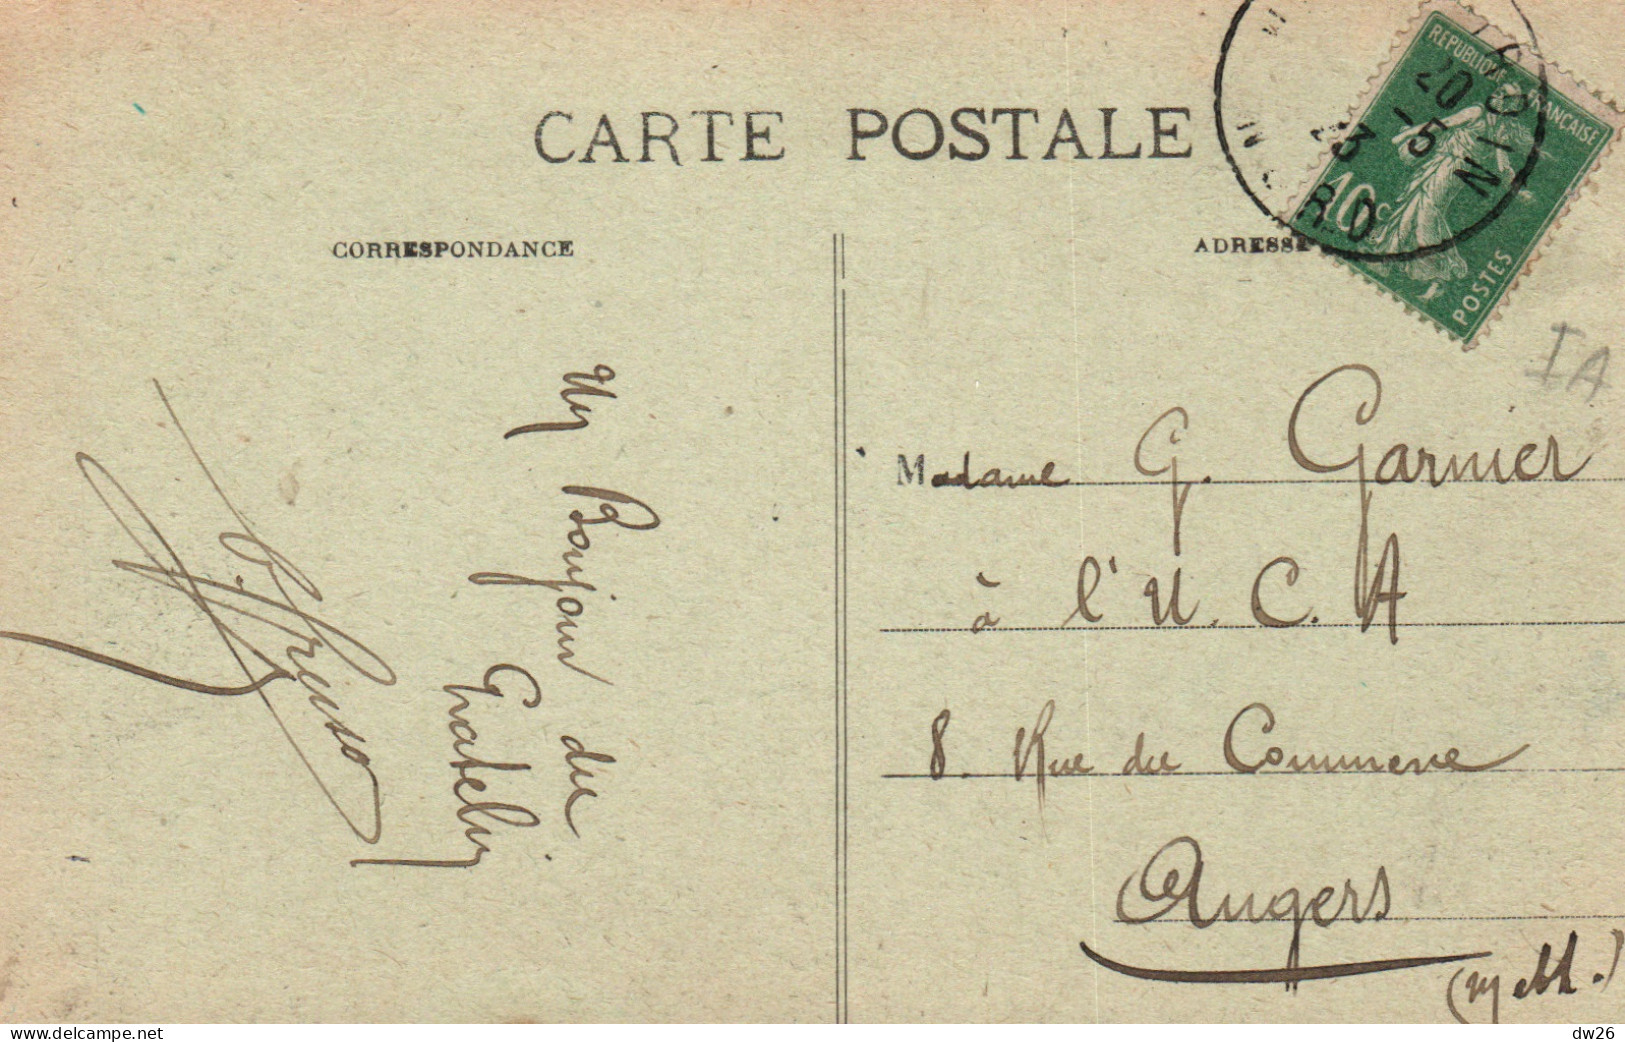 CARTE POSTALE
CORRESPONDANCE
ADRESSE
REPUBLIQUE FRANÇAISE
10c
POSTES
20 -5
23
IA
Un Bonjour du
Gratelu
Madame G. Garnier
à l'U.C.A
8. Rue du Commerce
Angers
(M et L.)
Delcampe.net
dw26